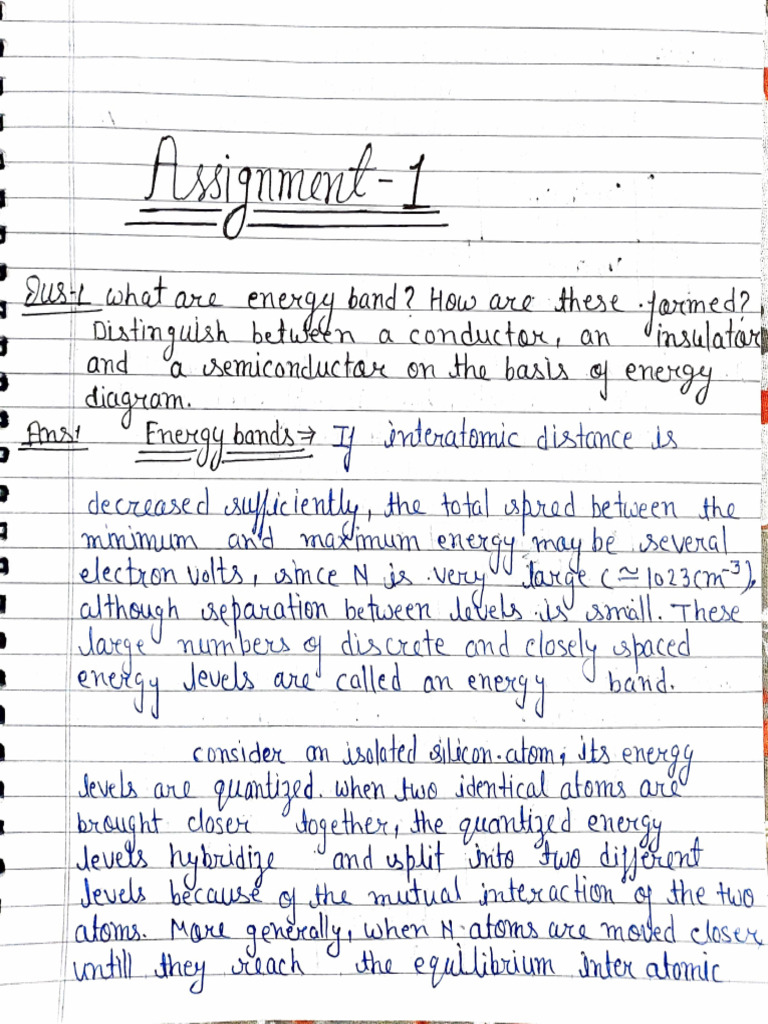 Assignment-1
Qus-1 what are energy band? How are these formed?
Distinguish between a conductor, an insulator
and a semiconductor on the basis of energy
diagram.
Ans! Energy bands → If interatomic distance is
decreased sufficiently, the total spred between the
minimum and maximum energy may be several
electron volts, since N is very large (≃1023cm⁻³),
although separation between levels is small. These
large numbers of discrete and closely spaced
energy levels are called an energy band.
consider an isolated silicon atom; its energy
levels are quantized. when two identical atoms are
brought closer together, the quantized energy
levels hybridize and split into two different
levels because of the mutual interaction of the two
atoms. More generally, when N atoms are moved closer
untill they reach the equilibrium inter atomic